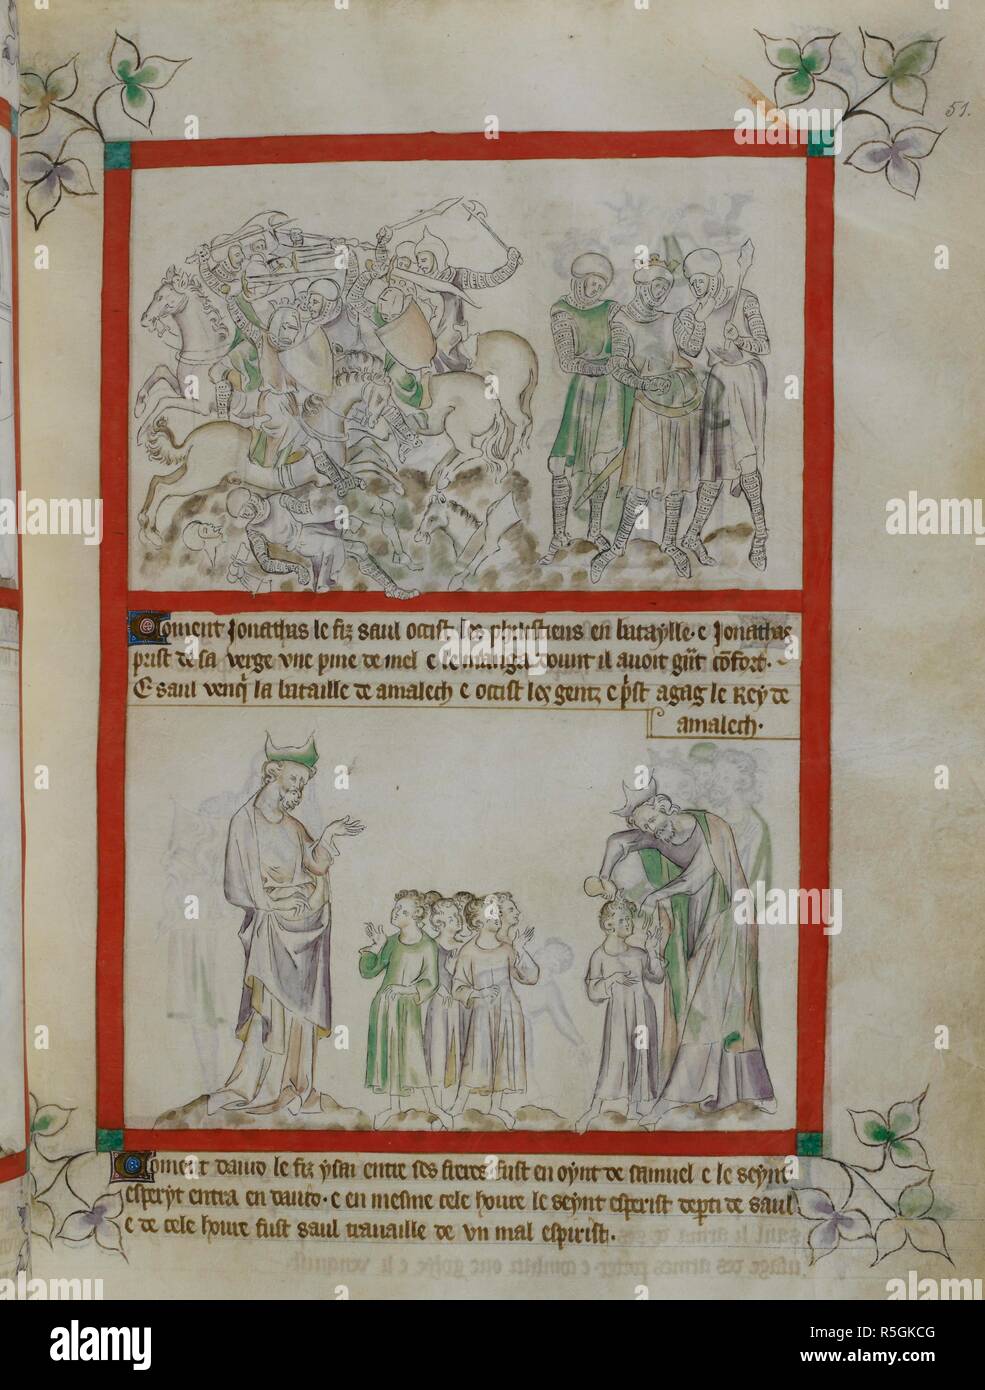 51.
Coment Jonathas le fiz saul occist les phistiens en bataylle · e Jonathas
prist de sa verge vne pine de mel e le manga dount il auoit g̃nt cõfort ·
E saul venq̃ la bataille de amalech e occist les gentz e p̃st agag le Rey de
amalech ·
Coment dauid le fiz ysai entre ses freres fust en oynt de samuel e le seynt
esperyt entra en dauid · e en mesme cele houre le seynt esperist dep̃ti de saul
e de cele houre fust saul trauaille de vn mal espirist ·
alamy
Image ID: R5GKCG
www.alamy.com